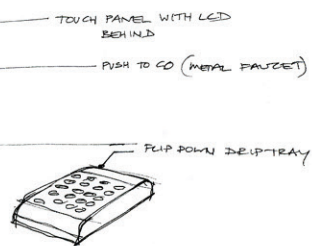 TOUCH PANEL WITH LCD
BEHIND
PUSH TO GO (METAL FAUCET)
FLIP DOWN DRIP TRAY